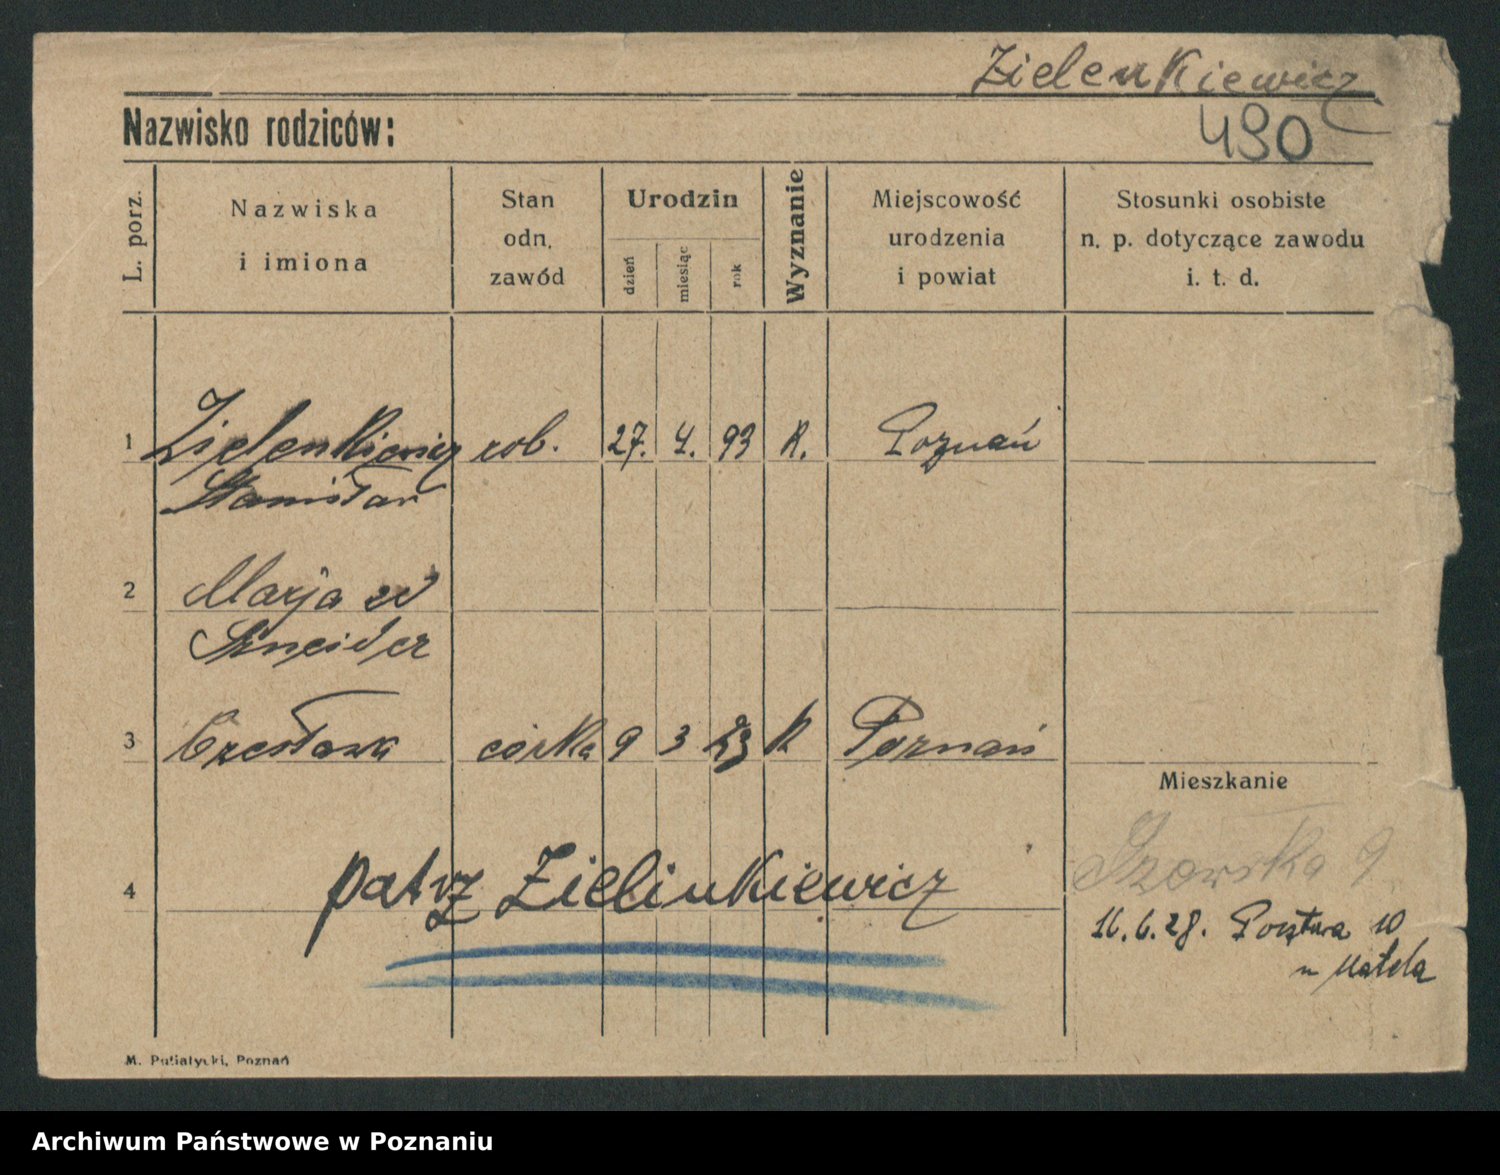 Zielenkiewicz
Nazwisko rodziców:
490
L. porz.
Nazwiska
i imiona
Stan
odn.
zawód
Urodzin
dzień
miesiąc
rok
Wyznanie
Miejscowość
urodzenia
i powiat
Stosunki osobiste
n. p. dotyczące zawodu
i. t. d.
1 Zielenkiewicz rob. 27. 4. 93 K. Poznań
Stanisław
2 Marja zd
Szneider
3 Czesława córka 9 3 23 K Poznań
Mieszkanie
4 patrz Zielinkiewicz
9
16.6.28. Pocztowa 10
u Matela
M. Putiatycki, Poznań
Archiwum Państwowe w Poznaniu